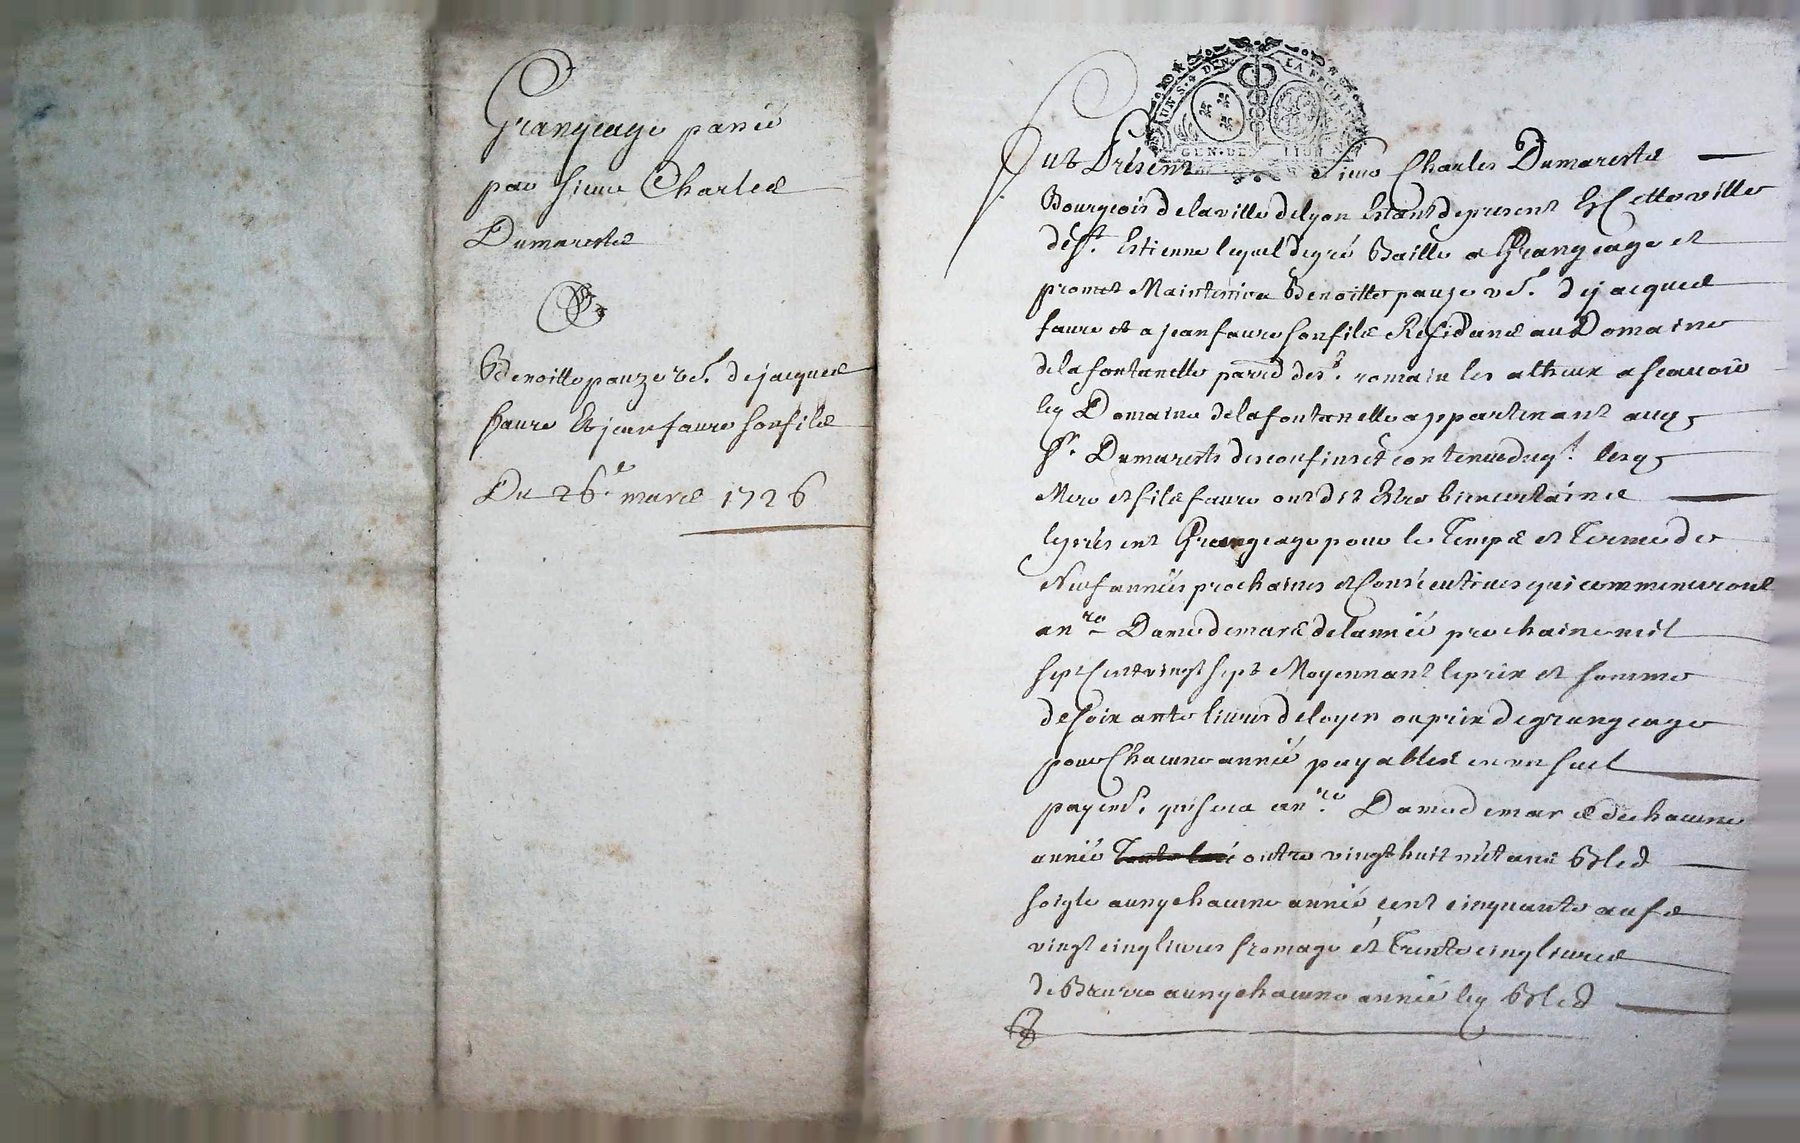 Grangeage passé
par sieur Charles
Dumareste
A
Benoitte pauze ve. de jacques
faure Et jean faure son fils
Du 26e. mars 1726
UN S. 4 DEN. LA FEUILLE
GEN. DE LION
Fut Présent Sieur Charles Dumareste
Bourgeois de la ville de lyon Estant de present En Cette ville
de st. Estienne lequel de gré Baille a Grangeage et
promet Maintenir a Benoitte pauze ve. de jacques
faure et a jean faure son fils Residans au Domaine
de la fontanelle parred de st. romain les atheux a scavoir
led Domaine de la fontanelle appartenant aud
sr. Dumareste des confins et contenue duql. lesd
Mere et fils faure ont dit Estre bien certains
le present Grangeage pour le temps et terme de
Neuf années prochaines et Consecutives qui commenceront
a nre Dame de mars de l'année prochaine mil
sept Cent vingt sept Moyennant le prix et somme
de soixante livres de loyer ou prix de grangeage
pour Chacune année payables en un seul
payemt. qui sera a nre Dame de mars de chacune
année outre vingt huit métans Bled
seigle aussy chacune année cent cinquante œufs
vingt cinq livres fromage et trente cinq livres
de Beurre aussy chacune année led Bled